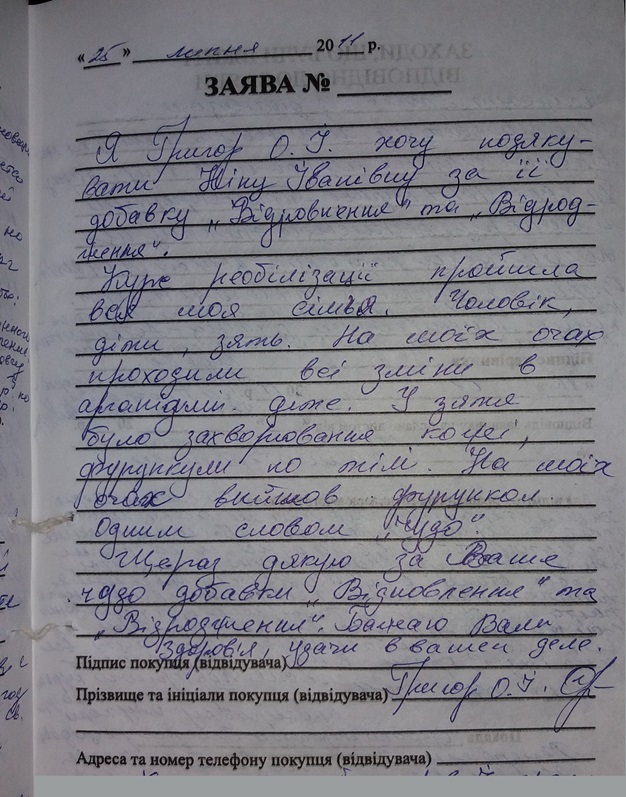 « 25 » липня 2011 р.
ЗАЯВА №
Я Григор О. І. хочу подяку-
вати Ніну Іванівну за її
добавку „Відровнення" та „Відрод-
ження".
Курс реобілізації пройшла
вся моя сімья. Чоловік,
діти, зять. На моїх очах
проходили всі зміни в
дітей. У зятя
було захворювання кожі,
фурункули по тілі. На моїх
очах вийшов фурункол
Одним словом „Чудо".
Щераз дякую за Ваше
чудо добавки „Відновлення" та
„Відродження". Бажаю Вам
Здоров'я, удачи в вашем деле.
Підпис покупця (відвідувача)
Прізвище та ініціали покупця (відвідувача) Григор О. І.
Адреса та номер телефону покупця (відвідувача)